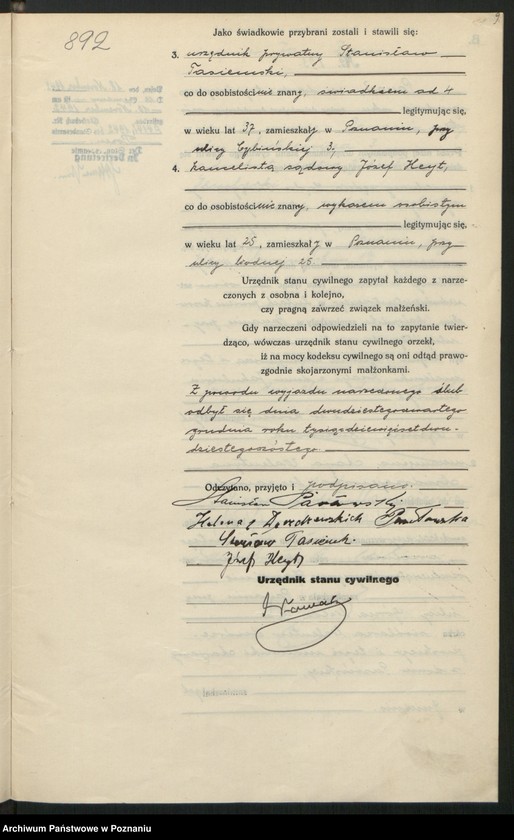 892
Jako świadkowie przybrani zostali i stawili się:
3. urzędnik prywatny Stanisław
Tasiemski,
co do osobistości nic znany, świadkiem ad 4
legitymując się,
w wieku lat 37, zamieszkały w Poznaniu, przy
ulicy Cybińskiej 3,
4. kancelista sądowy Józef Heyt,
co do osobistości nic znany, wykazem osobistym
legitymując się,
w wieku lat 25, zamieszkały w Poznaniu, przy
ulicy Wodnej 25.
Urzędnik stanu cywilnego zapytał każdego z narze-
czonych z osobna i kolejno,
czy pragną zawrzeć związek małżeński.
Gdy narzeczeni odpowiedzieli na to zapytanie twier-
dząco, wówczas urzędnik stanu cywilnego orzekł,
iż na mocy kodeksu cywilnego są oni odtąd prawo-
zgodnie skojarzonymi małżonkami.
Z powodu wyjazdu narzeczonego ślub
odbył się dnia dwudziestegoczwartego
grudnia roku tysiącdziewięćsetdwu-
dziestegoszóstego
Odczytano, przyjęto i podpisano.
Stanisław
Helena z
Stanisław Tasiemski
Józef Heyt
Urzędnik stanu cywilnego
Archiwum Państwowe w Poznaniu